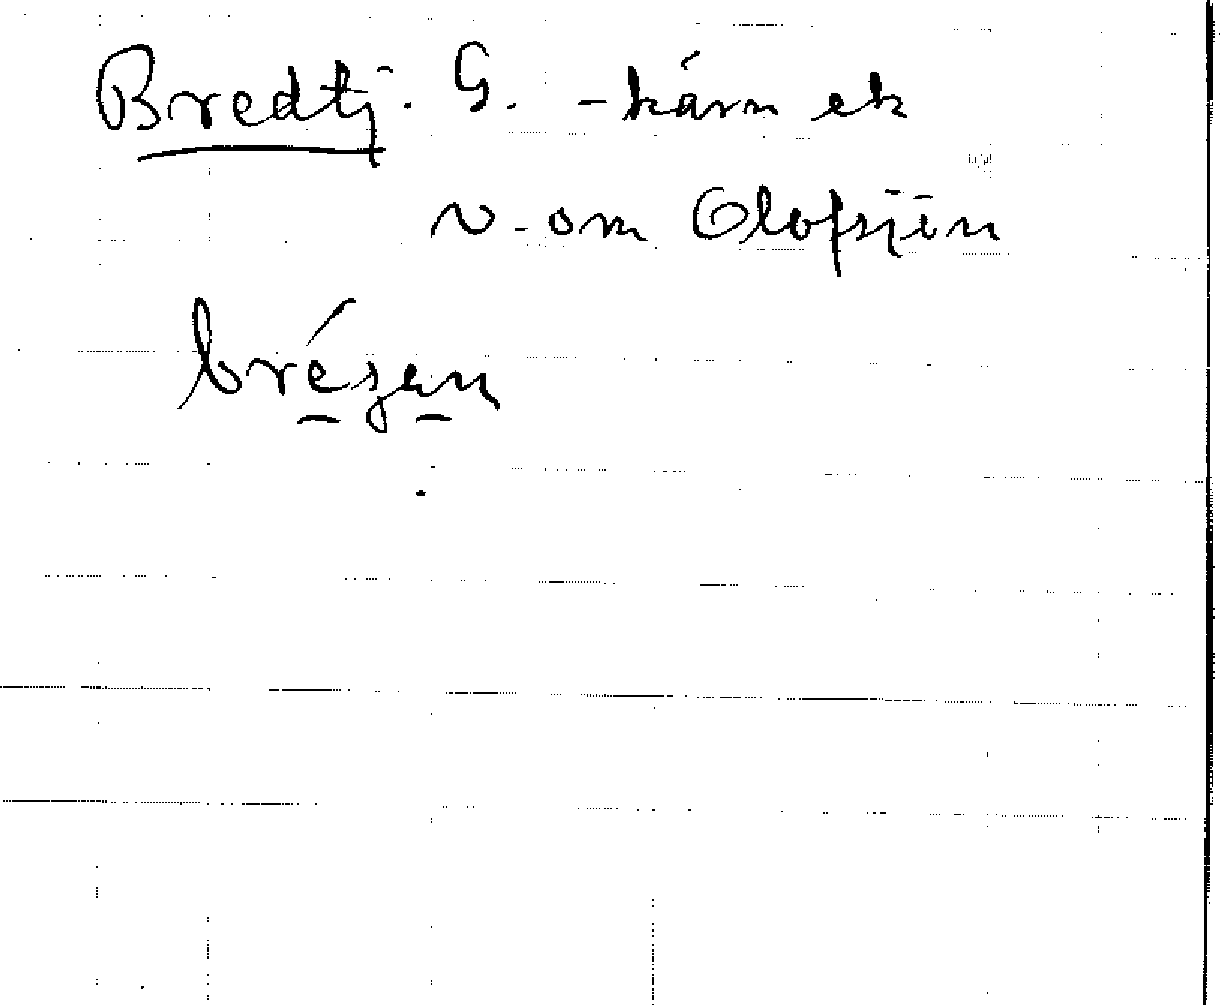 Bredtj. G. - kärn ek
v. om Olofsjön
brézan